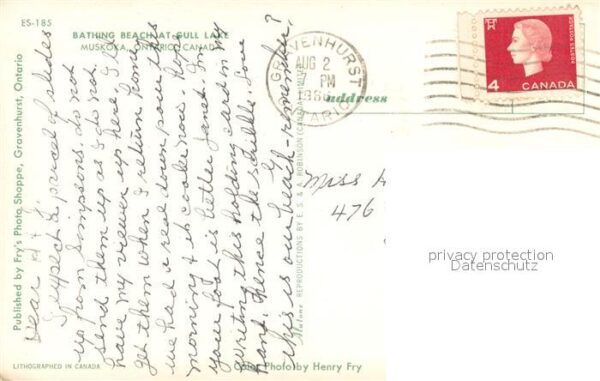 ES-185
BATHING BEACH AT GULL LAKE
MUSKOKA, ONTARIO, CANADA
Published by Fry's Photo Shoppe, Gravenhurst, Ontario
LITHOGRAPHED IN CANADA
Dear
I expect a parcel of slides
up from Simpsons. Do not
send them up as I do not
have my viewer up here. I'll
get them when I return home
we had a real down pour this
morning & it's cooler now. Hope
your foot is better Janet. I'm
writing this holding card in my
hand. Hence the scribble. Love
This is our beach - remember?
Color Photo by Henry Fry
REPRODUCTIONS BY E. S. & A. ROBINSON (CANADA)
GRAVENHURST
AUG 2
PM
ONTARIO
address
POSTES POSTAGE
4 CANADA
Miss
476
privacy protection
Datenschutz